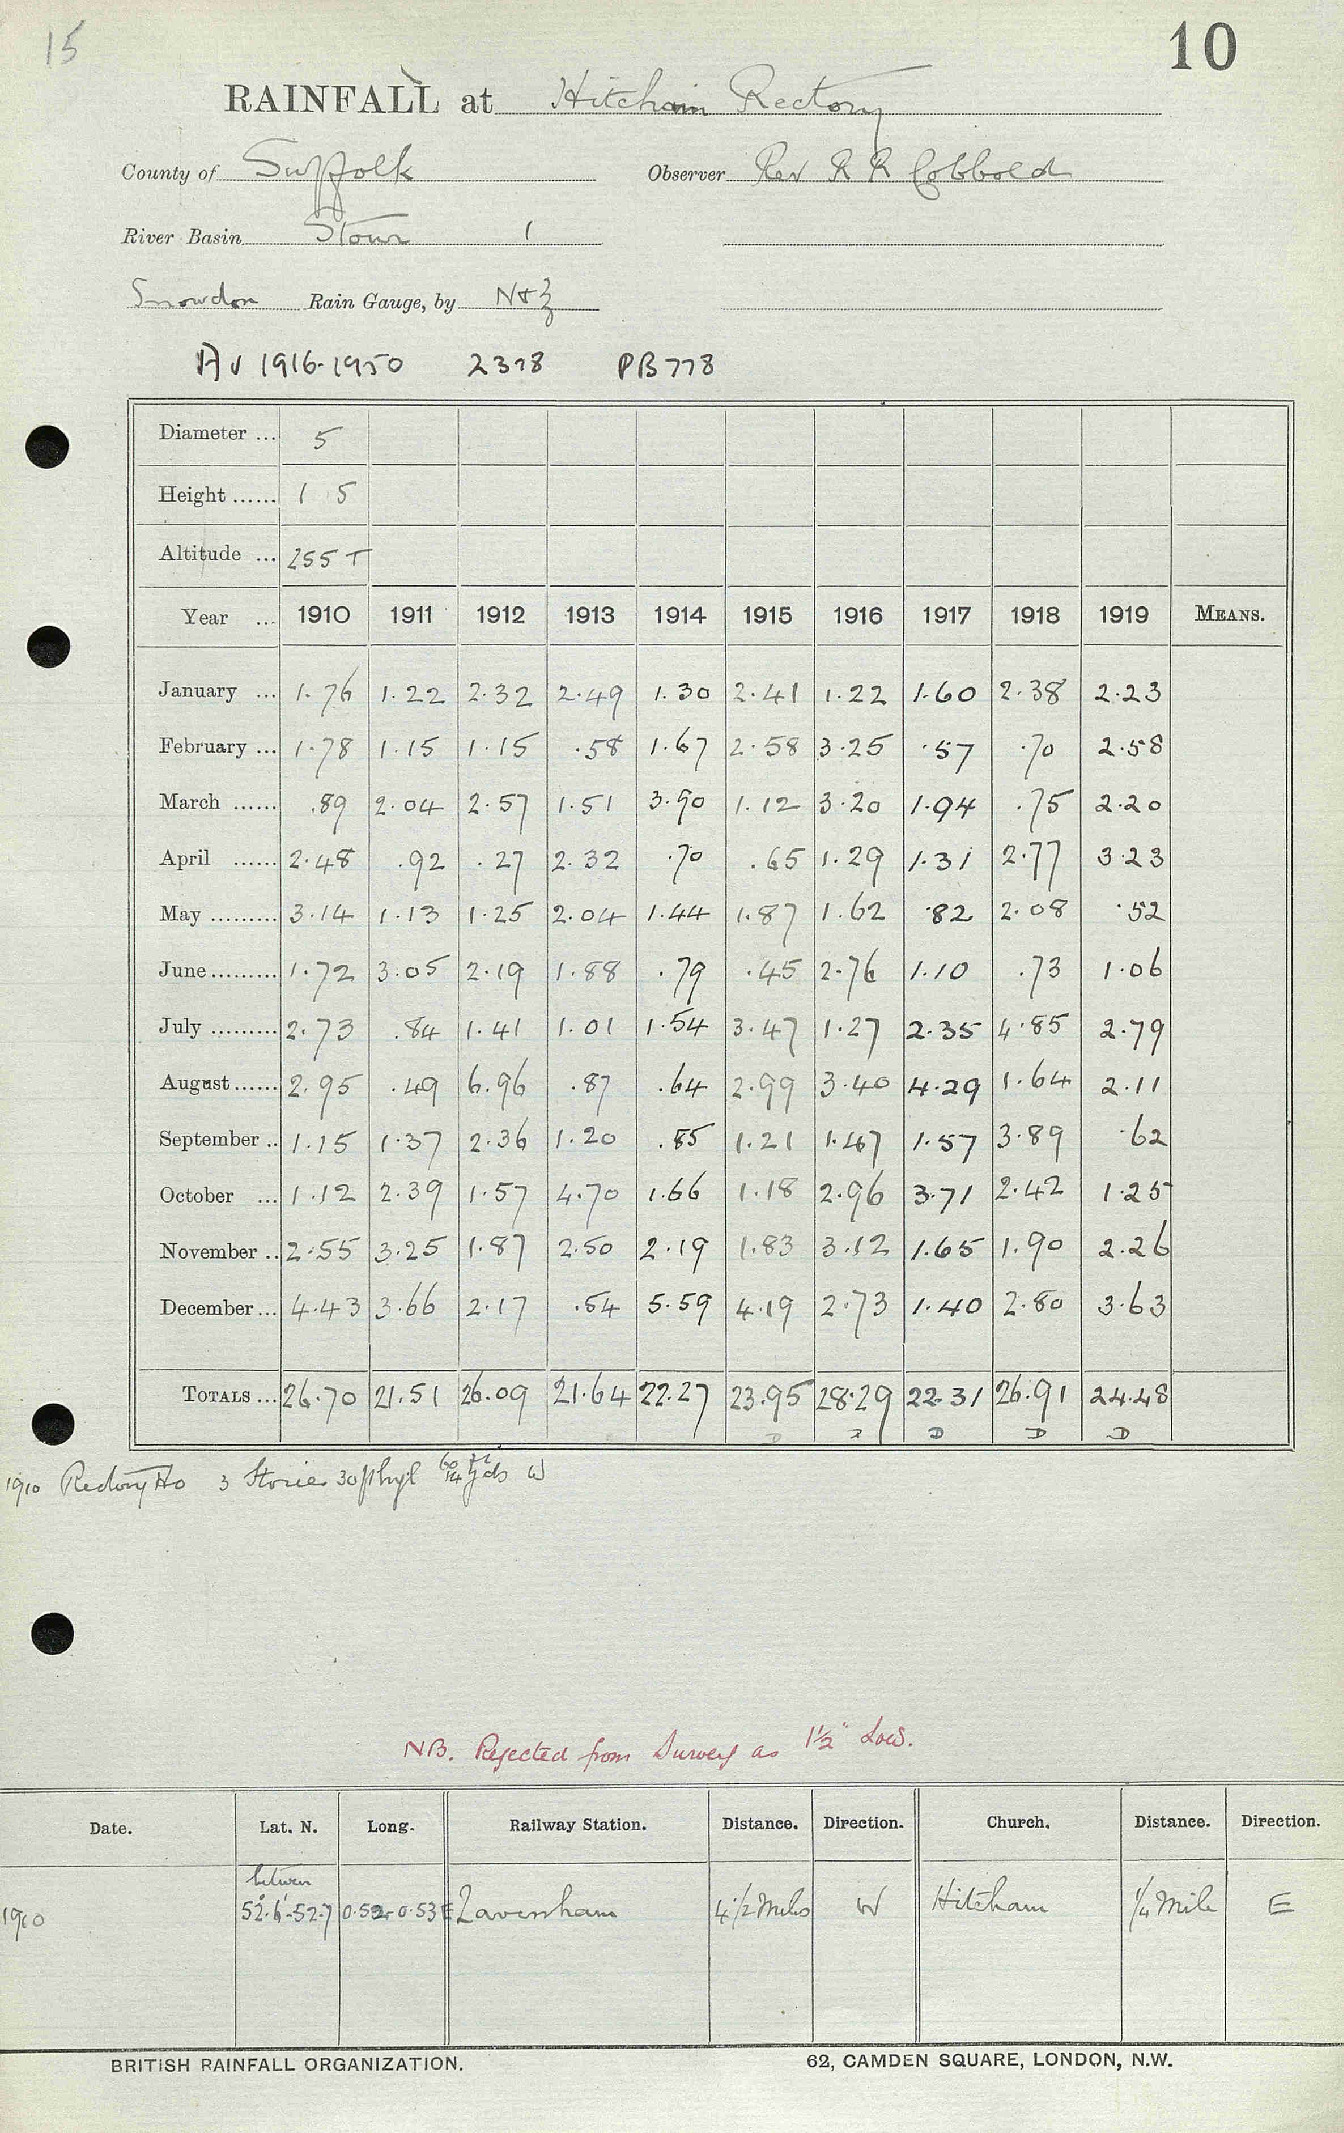 15
10
RAINFALL at Hitcham Rectory
County of Suffolk Observer Rev R R Cobbold
River Basin Stour 1
Snowdon Rain Gauge, by N & Z
Av 1916-1950 2378 PB778
Diameter ... 5
Height ...... 1 5
Altitude ... 255 T
Year ... 1910 1911 1912 1913 1914 1915 1916 1917 1918 1919 MEANS.
January ... 1.76 1.22 2.32 2.49 1.30 2.41 1.22 1.60 2.38 2.23
February ... 1.78 1.15 1.15 .58 1.67 2.58 3.25 .57 .70 2.58
March ...... .89 2.04 2.57 1.51 3.90 1.12 3.20 1.94 .75 2.20
April ...... 2.48 .92 .27 2.32 .70 .65 1.29 1.31 2.77 3.23
May ......... 3.14 1.13 1.25 2.04 1.44 1.87 1.62 .82 2.08 .52
June ......... 1.72 3.05 2.19 1.88 .79 .45 2.76 1.10 .73 1.06
July ......... 2.73 .84 1.41 1.01 1.54 3.47 1.27 2.35 4.85 2.79
August ...... 2.95 .49 6.96 .87 .64 2.99 3.40 4.29 1.64 2.11
September .. 1.15 1.37 2.36 1.20 .85 1.21 1.47 1.57 3.89 .62
October ... 1.12 2.39 1.57 4.70 1.66 1.18 2.96 3.71 2.42 1.25
November .. 2.55 3.25 1.87 2.50 2.19 1.83 3.12 1.65 1.90 2.26
December ... 4.43 3.66 2.17 .54 5.59 4.19 2.73 1.40 2.80 3.63
TOTALS ... 26.70 21.51 26.09 21.64 22.27 23.95 28.29 22.31 26.91 24.48
D D D D D
1910 Rectory Ho 3 Stories 30 ft high yds W
NB. Rejected from Survey as 1½" Low.
Date. Lat. N. Long. Railway Station. Distance. Direction. Church. Distance. Direction.
between
1910 52.6-52.7 0.52-0.53E Lavenham 4½ Miles W Hitcham ¼ Mile E
BRITISH RAINFALL ORGANIZATION. 62, CAMDEN SQUARE, LONDON, N.W.